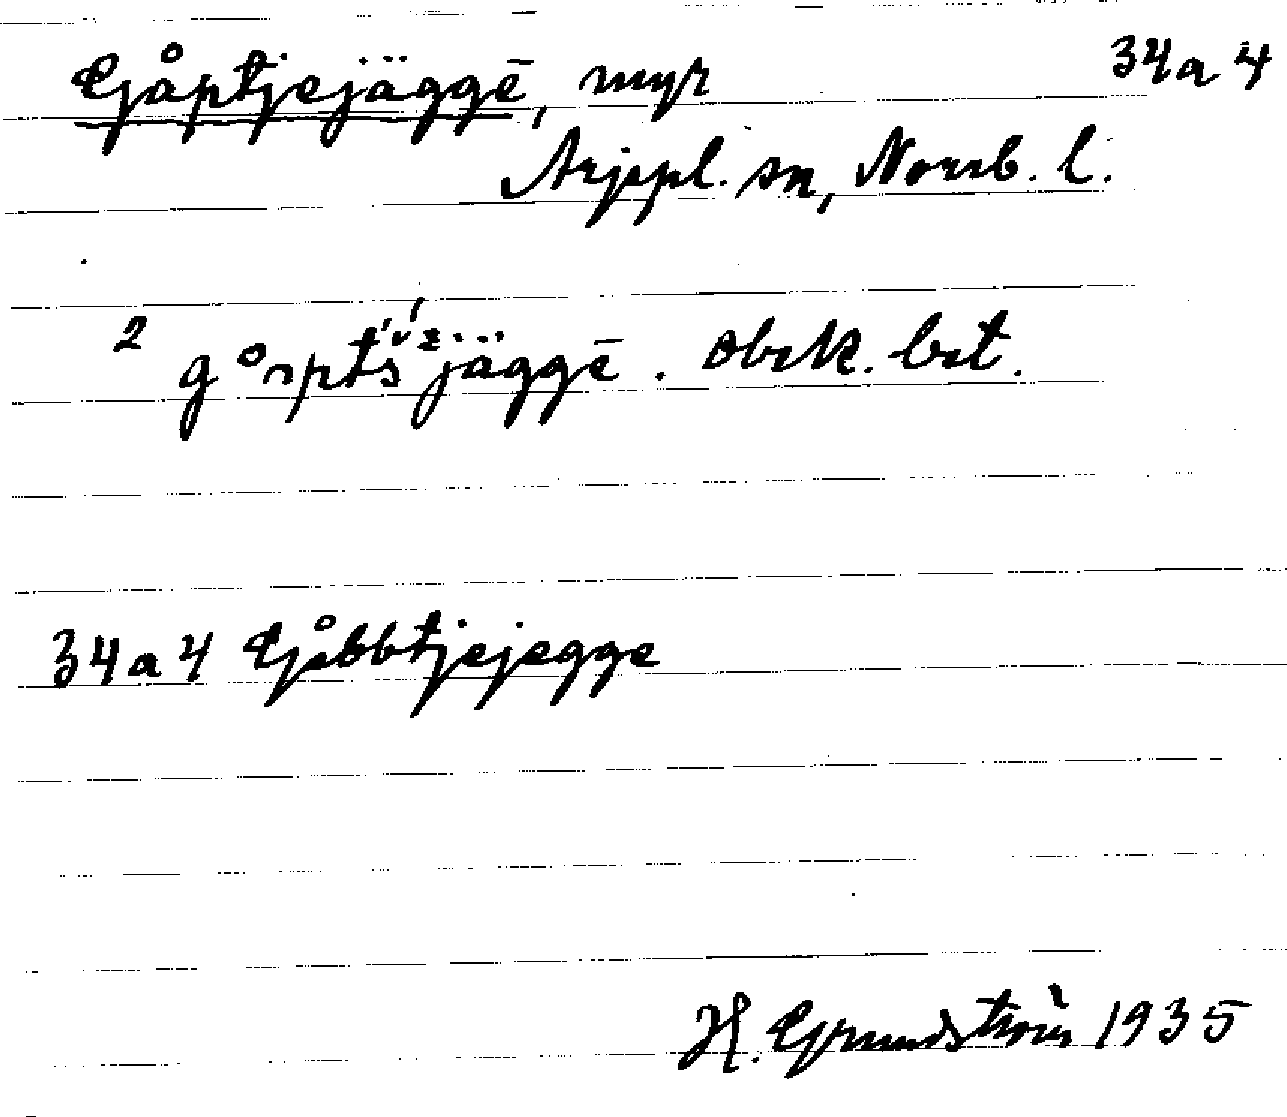 Gåptjejäggē, myr 34a4
Arjepl. sn, Norrb. l.
jäggē. obek. bet.
34a4 Gåbbtjejegge
H. Grundström 1935